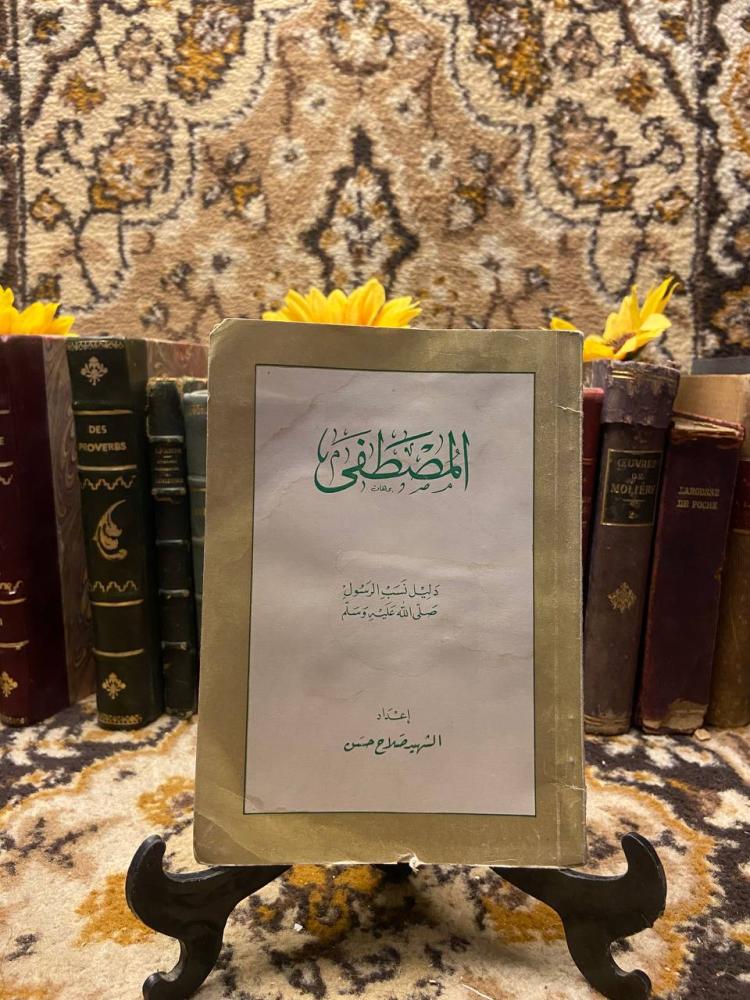 المُصْطَفَى
دَلِيْل نَسَبِ الرَسُوُلْ
صَلّى اللّه عَلَيْهِ وَسَلّم
إعْدَاد
الشهيد صَلاح حسَن
DES
PROVERBS
ŒUVRES
DE
MOLIÈRE
2
LAROUSSE
DE POCHE